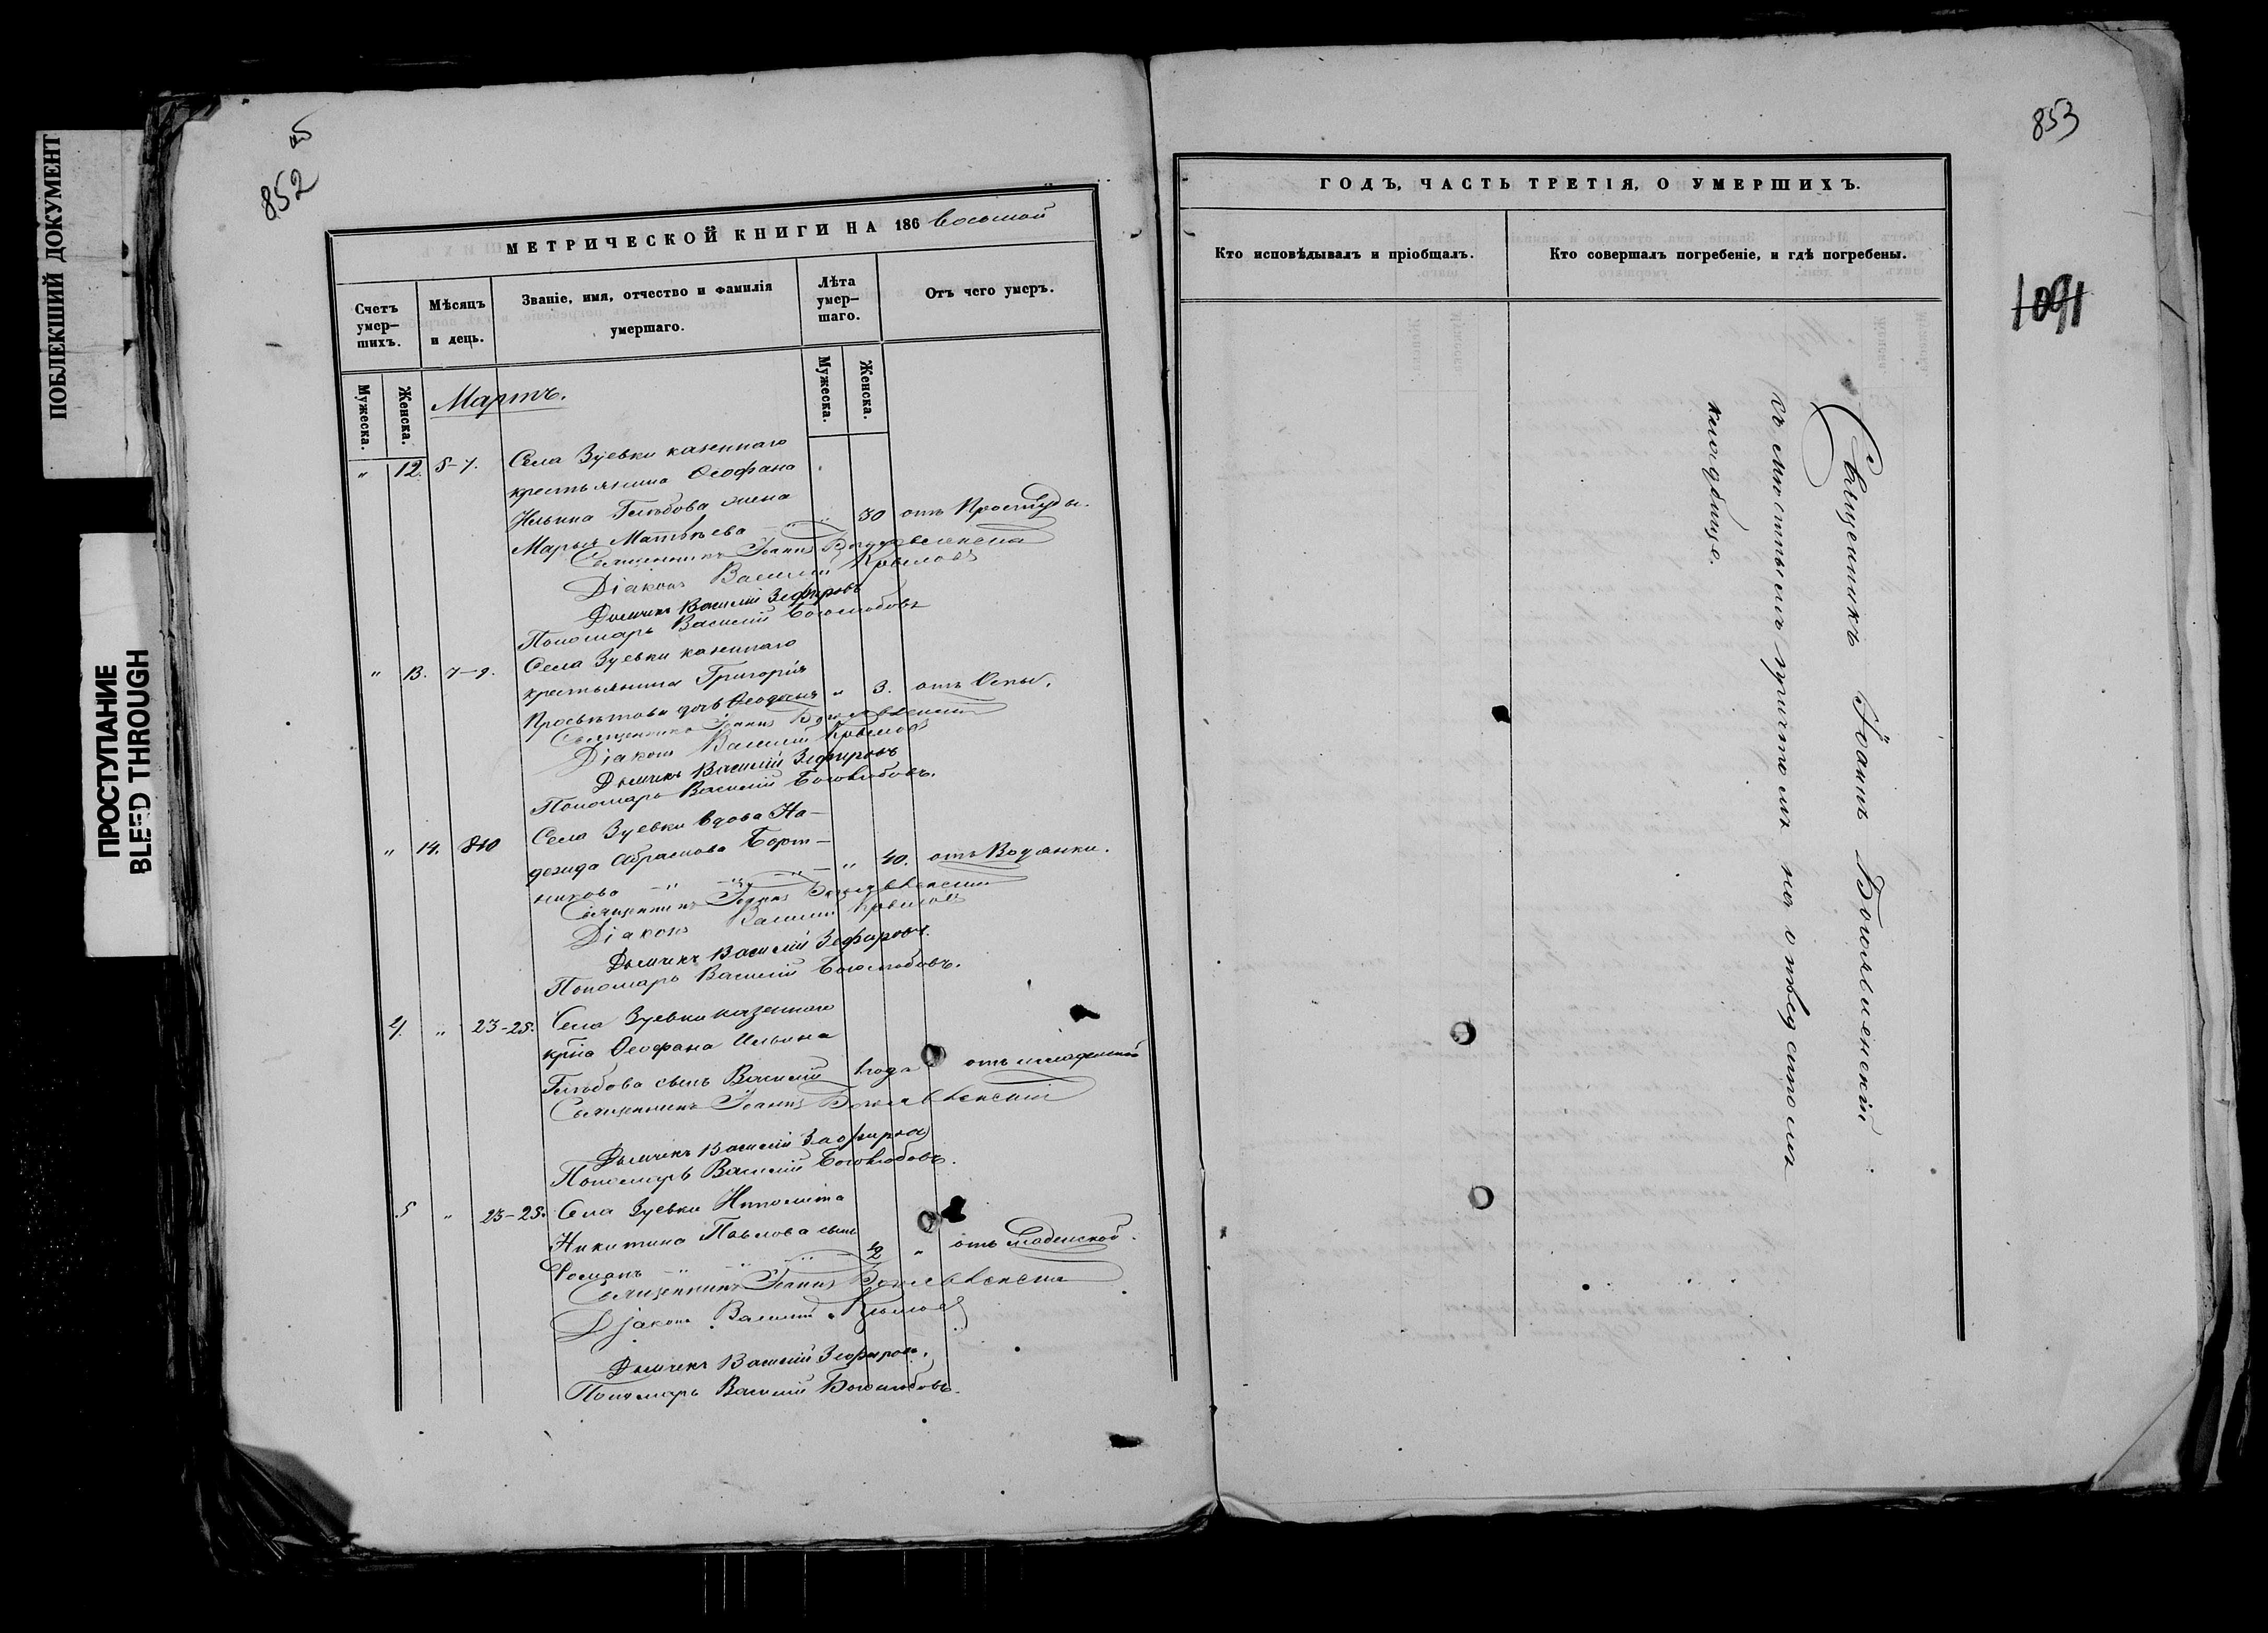 ПОБЛЕКШИЙ ДОКУМЕНТ
ПРОСТУПАНИЕ
BLEED THROUGH
852 об
МЕТРИЧЕСКОЙ КНИГИ НА 186 восьмой
Счетъ умер—шихъ.
Мѣсяцъ и день.
Званіе, имя, отчество и фамилія умершаго.
Лѣта умер—шаго.
Отъ чего умеръ.
Мужеска.
Женска.
Мартъ.
Мужеска.
Женска.
" 12. 5-7. Села Зуевки казеннаго
крестьянина Ѳеофана
Ильина Глѣбова жена
Марья Матвѣева " 30 отъ Простуды.
Священникъ Іоаннъ Богоявленскій
Діаконъ Василій Крыловъ
Дьячекъ Василій Зефировъ
Пономарь Василій Боголюбовъ
" 13. 7-9. Села Зуевки казеннаго
крестьянина Григорія
Просвѣтова дочь " 3. отъ Оспы.
Священникъ Іоаннъ Богоявленскій
Діаконъ Василій Крыловъ
Дьячекъ Василій Зефировъ
Пономарь Василій Боголюбовъ.
" 14. 8-10 Села Зуевки вдова На-
дежда Абрамова Борт-
никова " 40. отъ Водянки.
Священникъ Іоаннъ Богоявленскій
Діаконъ Василій Крыловъ
Дьячекъ Василій Зефировъ.
Пономарь Василій Боголюбовъ.
4. " 23-25. Села Зуевки казеннаго
кр-на Ѳеофана Ильина
Глѣбова сынъ Василій 1 года отъ младенской
Священникъ Іоаннъ Богоявленскій
Дьячекъ Василій Зефировъ
Пономарь Василій Боголюбовъ.
5 " 23-25. Села Зуевки Ипполита
Никитина Павлова сынъ
Романъ " ½ " отъ младенской.
Священникъ Іоаннъ Богоявленскій
Діаконъ Василій Крыловъ
Дьячекъ Василій Зефировъ.
Пономарь Василій Боголюбовъ.
853
1091
ГОДЪ, ЧАСТЬ ТРЕТІЯ, О УМЕРШИХЪ.
Кто исповѣдывалъ и пріобщалъ.
Кто совершалъ погребеніе, и гдѣ погребены.
Священникъ Іоаннъ Богоявленскій
съ мѣстнымъ причтомъ на отведенномъ
кладбищѣ.